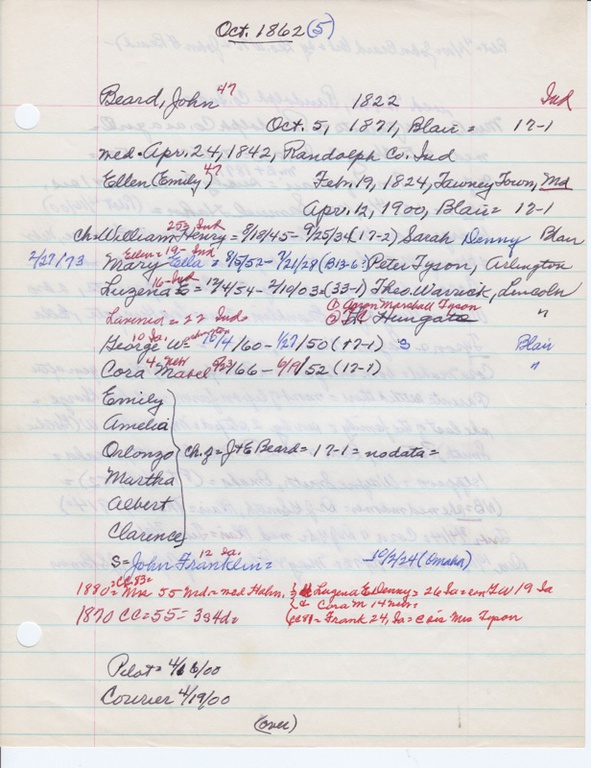 Oct. 1862 (5)
Beard, John 47 1822 Ind
Oct. 5, 1871, Blair = 17-1
med. Apr. 24, 1842, Randolph Co. Ind
Ellen (Emily) 47 Feb. 19, 1824, Tawney Town, Md
Apr. 12, 1900, Blair = 17-1
25½ Ind
ch = William Henry = 8/18/45 - 9/25/34 (17-2) Sarah Denny Blair
Ellen = 19 - Ind
2/27/73 Mary Ella = 8/5/52 - 7/21/28 (B13-6?) Peter Tyson, Arlington
16 - Ind
Luzena E = 12/4/54 - 2/19/03 = (33-1) Theo. Warrick, Lincoln
① Aaron Marshall Tyson
Lavenia = 22 Ind ② Hungate "
10 Ia.
George W = 12/4/60 - 1/27/50 (17-1) S Blair
4 Neb
Cora Mabel 5/23/66 - 6/19/52 (17-1) "
Emily
Amelia
Orlonzo ch. of J & E Beard = 17-1 = no data =
Martha
Albert
Clarence
12 Ia.
S = John Franklin = 10/2/24 (Omaha)
CC 83 =
1880 = Mrs 55 Md = ned Hahn, Luzena E = Denny = 26 Ia = con G W 19 Ia
& Cora M 14
1870 CC = 55 = 3s4d = CC 81 = Frank 24, Ia = c sis Mrs Tyson
Pilot = 4/ /00
Courier 4/19/00
(over)